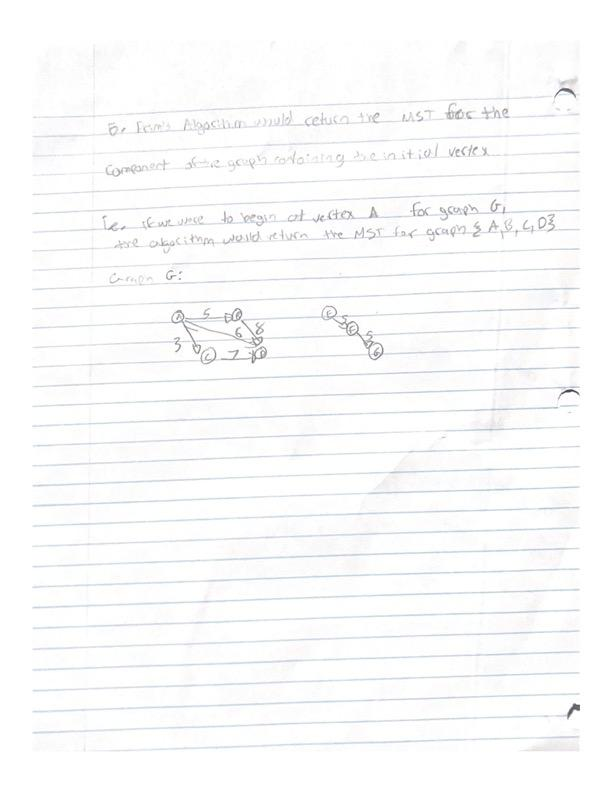 5. Prim's Algorithm would return the MST for the
Component of the graph containing the initial vertex
I.e. if we were to begin at vertex A for graph G,
the algorithm would return the MST for graph {A, B, C, D}
Graph G:
A 5 B
3 6 8
C 7 D
E 5 F 5 G